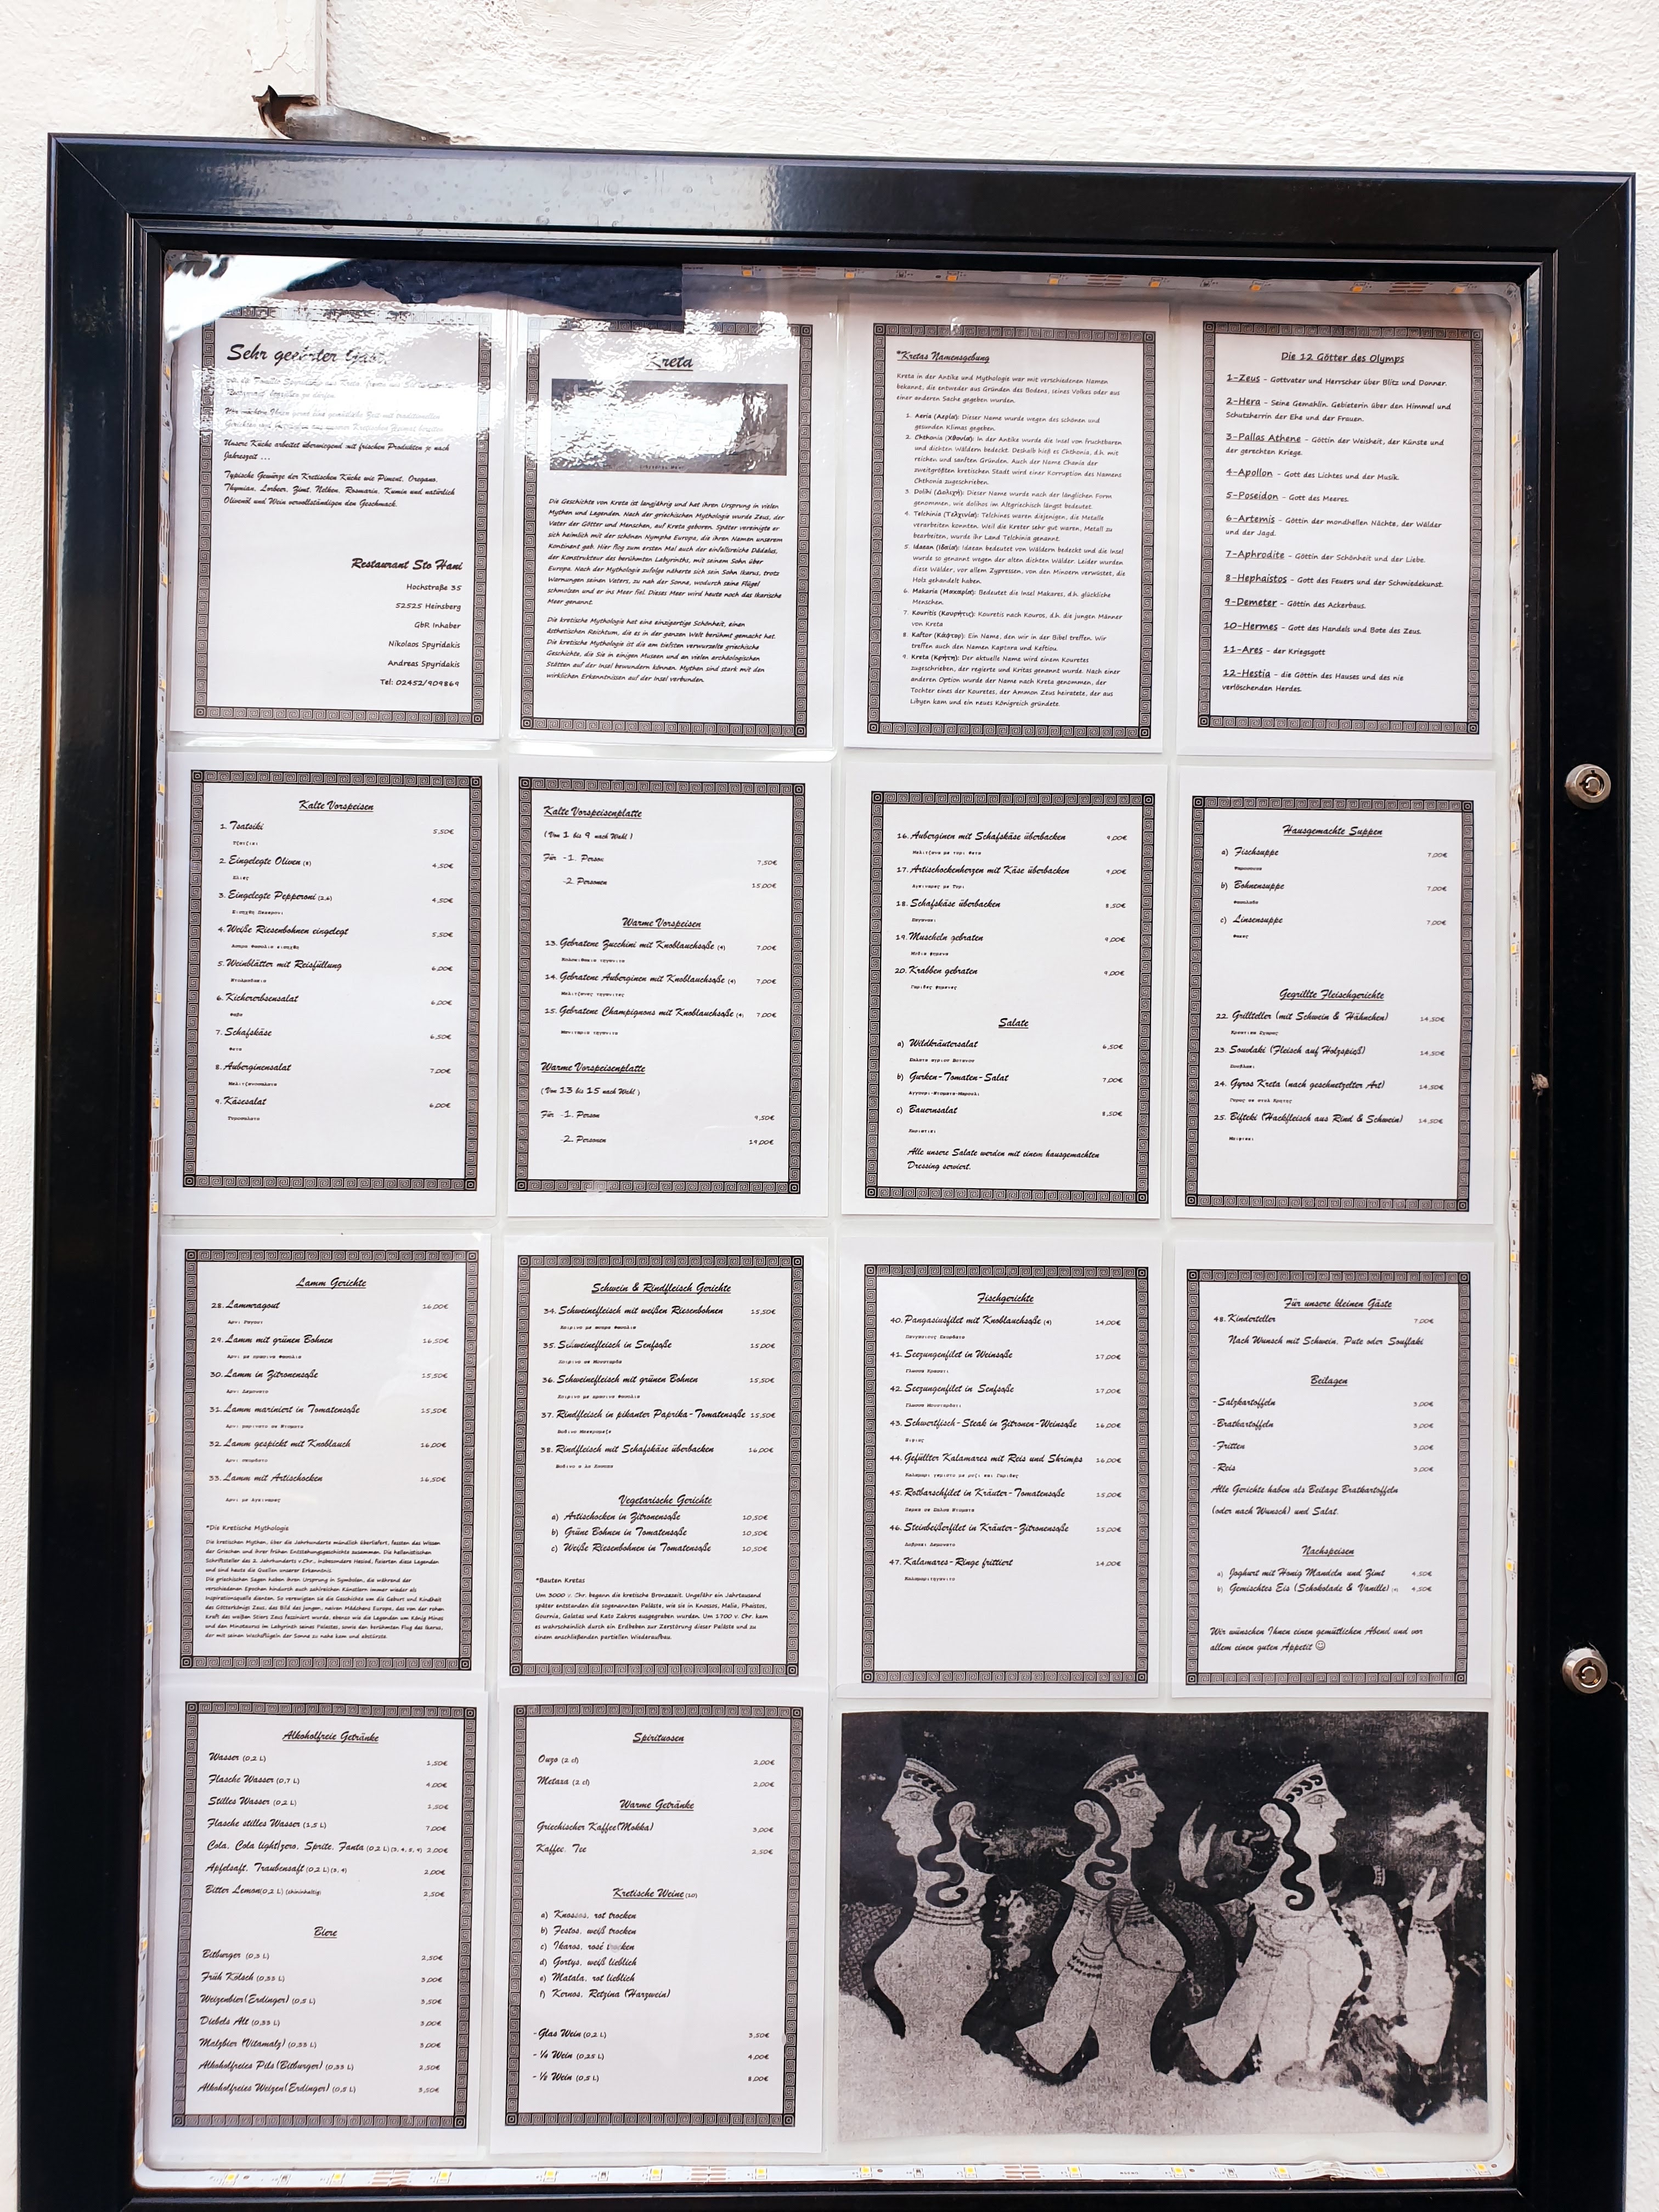 Sehr geehrter Gast
Unsere Küche arbeitet überwiegend mit frischen Produkten je nach
Jahreszeit ...
Typische Gewürze der Kretischen Küche wie Piment, Oregano,
Thymian, Lorbeer, Zimt, Nelken, Rosmarin, Kumin und natürlich
Olivenöl und Wein vervollständigen den Geschmack.
Restaurant Sto Hani
Hochstraße 35
52525 Heinsberg
GbR Inhaber
Nikolaos Spyridakis
Andreas Spyridakis
Tel: 02452/909869
Kreta
Die Geschichte von Kreta ist langjährig und hat ihren Ursprung in vielen
Mythen und Legenden. Nach der griechischen Mythologie wurde Zeus, der
Vater der Götter und Menschen, auf Kreta geboren. Später vereinigte er
sich heimlich mit der schönen Nymphe Europa, die ihren Namen unserem
Kontinent gab. Hier flog zum ersten Mal auch der einfallsreiche Dädalus,
der Konstrukteur des berühmten Labyrinths, mit seinem Sohn über
Europa. Nach der Mythologie zufolge näherte sich sein Sohn Ikarus, trotz
Warnungen seinen Vaters, zu nah der Sonne, wodurch seine Flügel
schmolzen und er ins Meer fiel. Dieses Meer wird heute noch das Ikarische
Meer genannt.
Die kretische Mythologie hat eine einzigartige Schönheit, einen
ästhetischen Reichtum, die es in der ganzen Welt berühmt gemacht hat.
Die kretische Mythologie ist die am tiefsten verwurzelte griechische
Geschichte, die Sie in einigen Museen und an vielen archäologischen
Stätten auf der Insel bewundern können. Mythen sind stark mit den
wirklichen Erkenntnissen auf der Insel verbunden.
*Kretas Namensgebung
Kreta in der Antike und Mythologie war mit verschiedenen Namen
bekannt, die entweder aus Gründen des Bodens, seines Volkes oder aus
einer anderen Sache gegeben wurden.
1. Aeria (Αερία): Dieser Name wurde wegen des schönen und
gesunden Klimas gegeben.
2. Chthonia (Χθονία): In der Antike wurde die Insel von fruchtbaren
und dichten Wäldern bedeckt. Deshalb hieß es Chthonia, d.h. mit
reichen und sanften Gründen. Auch der Name Chania der
zweitgrößten kretischen Stadt wird einer Korruption des Namens
Chthonia zugeschrieben.
3. Dolihi (Δολιχή): Dieser Name wurde nach der länglichen Form
genommen, wie dolihos im Altgriechisch längst bedeutet.
4. Telchinia (Τελχινία): Telchines waren diejenigen, die Metalle
verarbeiten konnten. Weil die Kreter sehr gut waren, Metall zu
bearbeiten, wurde ihr Land Telchinia genannt.
5. Idaean (Ιδαία): Idaean bedeutet von Wäldern bedeckt und die Insel
wurde so genannt wegen der alten dichten Wälder. Leider wurden
diese Wälder, vor allem Zypressen, von den Minoern verwüstet, die
Holz gehandelt haben.
6. Makaria (Μακαρία): Bedeutet die Insel Makares, d.h. glückliche
Menschen.
7. Kouritis (Κουρήτις): Kouretis nach Kouros, d.h. die jungen Männer
von Kreta
8. Kaftor (Κάφτορ): Ein Name, den wir in der Bibel treffen. Wir
treffen auch den Namen Kaptora und Keftiou.
9. Kreta (Κρήτη): Der aktuelle Name wird einem Kouretes
zugeschrieben, der regierte und Kritas genannt wurde. Nach einer
anderen Option wurde der Name nach Kreta genommen, der
Tochter eines der Kouretes, der Ammon Zeus heiratete, der aus
Libyen kam und ein neues Königreich gründete.
Die 12 Götter des Olymps
1-Zeus - Gottvater und Herrscher über Blitz und Donner.
2-Hera - Seine Gemahlin. Gebieterin über den Himmel und
Schutzherrin der Ehe und der Frauen.
3-Pallas Athene - Göttin der Weisheit, der Künste und
der gerechten Kriege.
4-Apollon - Gott des Lichtes und der Musik.
5-Poseidon - Gott des Meeres.
6-Artemis - Göttin der mondhellen Nächte, der Wälder
und der Jagd.
7-Aphrodite - Göttin der Schönheit und der Liebe.
8-Hephaistos - Gott des Feuers und der Schmiedekunst.
9-Demeter - Göttin des Ackerbaus.
10-Hermes - Gott des Handels und Bote des Zeus.
11-Ares - der Kriegsgott
12-Hestia - die Göttin des Hauses und des nie
verlöschenden Herdes.
Kalte Vorspeisen
1. Tsatsiki 5,50€
2. Eingelegte Oliven 4,50€
3. Eingelegte Pepperoni 4,50€
4. Weiße Riesenbohnen eingelegt 5,50€
5. Weinblätter mit Reisfüllung 6,00€
6. Kichererbsensalat 6,00€
7. Schafskäse 6,50€
8. Auberginensalat 7,00€
9. Käsesalat 6,00€
Kalte Vorspeisenplatte
(Von 1 bis 9 nach Wahl)
Für -1. Person 7,50€
-2. Personen 15,00€
Warme Vorspeisen
13. Gebratene Zucchini mit Knoblauchsoße (4) 7,00€
14. Gebratene Auberginen mit Knoblauchsoße (4) 7,00€
15. Gebratene Champignons mit Knoblauchsoße (4) 7,00€
Warme Vorspeisenplatte
(Von 13 bis 15 nach Wahl)
Für -1. Person 9,50€
-2. Personen 19,00€
16. Auberginen mit Schafskäse überbacken 9,00€
17. Artischockenherzen mit Käse überbacken 9,00€
18. Schafskäse überbacken 8,50€
19. Muscheln gebraten 9,00€
20. Krabben gebraten 9,00€
Salate
a) Wildkräutersalat 6,50€
b) Gurken-Tomaten-Salat 7,00€
c) Bauernsalat 8,50€
Alle unsere Salate werden mit einem hausgemachten
Dressing serviert.
Hausgemachte Suppen
a) Fischsuppe 7,00€
b) Bohnensuppe 7,00€
c) Linsensuppe 7,00€
Gegrillte Fleischgerichte
22. Grillteller (mit Schwein & Hähnchen) 14,50€
23. Souvlaki (Fleisch auf Holzspieß) 14,50€
24. Gyros Kreta (nach geschnetzelter Art) 14,50€
25. Bifteki (Hackfleisch aus Rind & Schwein) 14,50€
Lamm Gerichte
28. Lammragout 16,00€
29. Lamm mit grünen Bohnen 16,50€
30. Lamm in Zitronensoße 15,50€
31. Lamm mariniert in Tomatensoße 15,50€
32. Lamm gespickt mit Knoblauch 16,00€
33. Lamm mit Artischocken 16,50€
*Die Kretische Mythologie
Die kretischen Mythen, über die Jahrhunderte mündlich überliefert, fassten das Wissen
der Griechen und ihrer frühen Entstehungsgeschichte zusammen. Die hellenistischen
Schriftsteller des 2. Jahrhunderts v.Chr., insbesondere Hesiod, fixierten diese Legenden
und sind heute die Quellen unserer Erkenntnis.
Die griechischen Sagen haben ihren Ursprung in Symbolen, die während der
verschiedenen Epochen hindurch auch zahlreichen Künstlern immer wieder als
Inspirationsquelle dienten. So verewigten sie die Geschichte um die Geburt und Kindheit
des Götterkönigs Zeus, das Bild des jungen, naiven Mädchens Europa, das von der rohen
Kraft des weißen Stiers Zeus fasziniert wurde, ebenso wie die Legenden um König Minos
und den Minotaurus im Labyrinth seines Palastes, sowie den berühmten Flug des Ikarus,
der mit seinen Wachsflügeln der Sonne zu nahe kam und abstürzte.
Schwein & Rindfleisch Gerichte
34. Schweinefleisch mit weißen Riesenbohnen 15,50€
35. Schweinefleisch in Senfsoße 15,00€
36. Schweinefleisch mit grünen Bohnen 15,50€
37. Rindfleisch in pikanter Paprika-Tomatensoße 15,50€
38. Rindfleisch mit Schafskäse überbacken 16,00€
Vegetarische Gerichte
a) Artischocken in Zitronensoße 10,50€
b) Grüne Bohnen in Tomatensoße 10,50€
c) Weiße Riesenbohnen in Tomatensoße 10,50€
*Bauten Kretas
Um 3000 v. Chr. begann die kretische Bronzezeit. Ungefähr ein Jahrtausend
später entstanden die sogenannten Paläste, wie sie in Knossos, Malia, Phaistos,
Gournia, Galatas und Kato Zakros ausgegraben wurden. Um 1700 v. Chr. kam
es wahrscheinlich durch ein Erdbeben zur Zerstörung dieser Paläste und zu
einem anschließenden partiellen Wiederaufbau.
Fischgerichte
40. Pangasiusfilet mit Knoblauchsoße (4) 14,00€
41. Seezungenfilet in Weinsoße 17,00€
42. Seezungenfilet in Senfsoße 17,00€
43. Schwertfisch-Steak in Zitronen-Weinsoße 16,00€
44. Gefüllter Kalamares mit Reis und Shrimps 16,00€
45. Rotbarschfilet in Kräuter-Tomatensoße 15,00€
46. Steinbeißerfilet in Kräuter-Zitronensoße 15,00€
47. Kalamares-Ringe frittiert 14,00€
Für unsere kleinen Gäste
48. Kinderteller 7,00€
Nach Wunsch mit Schwein, Pute oder Souflaki
Beilagen
-Salzkartoffeln 3,00€
-Bratkartoffeln 3,00€
-Fritten 3,00€
-Reis 3,00€
Alle Gerichte haben als Beilage Bratkartoffeln
(oder nach Wunsch) und Salat.
Nachspeisen
a) Joghurt mit Honig Mandeln und Zimt 4,50€
b) Gemischtes Eis (Schokolade & Vanille) 4,50€
Wir wünschen Ihnen einen gemütlichen Abend und vor
allem einen guten Appetit ☺
Alkoholfreie Getränke
Wasser (0,2 L) 1,50€
Flasche Wasser (0,7 L) 4,00€
Stilles Wasser (0,2 L) 1,50€
Flasche stilles Wasser (1,5 L) 7,00€
Cola, Cola light/zero, Sprite, Fanta (0,2 L) 2,00€
Apfelsaft, Traubensaft (0,2 L) 2,00€
Bitter Lemon(0,2 L) (chininhaltig) 2,50€
Biere
Bitburger (0,3 L) 2,50€
Früh Kölsch (0,33 L) 3,00€
Weizenbier(Erdinger) (0,5 L) 3,50€
Diebels Alt (0,33 L) 3,00€
Malzbier (Vitamalz) (0,33 L) 3,00€
Alkoholfreies Pils(Bitburger) (0,33 L) 2,50€
Alkoholfreies Weizen(Erdinger) (0,5 L) 3,50€
Spirituosen
Ouzo (2 cl) 2,00€
Metaxa (2 cl) 2,00€
Warme Getränke
Griechischer Kaffee(Mokka) 3,00€
Kaffee, Tee 2,50€
Kretische Weine (10)
a) Knossos, rot trocken
b) Festos, weiß trocken
c) Ikaros, rosé trocken
d) Gortys, weiß lieblich
e) Matala, rot lieblich
f) Kernos, Retzina (Harzwein)
-Glas Wein (0,2 L) 3,50€
-¼ Wein (0,25 L) 4,00€
-½ Wein (0,5 L) 8,00€